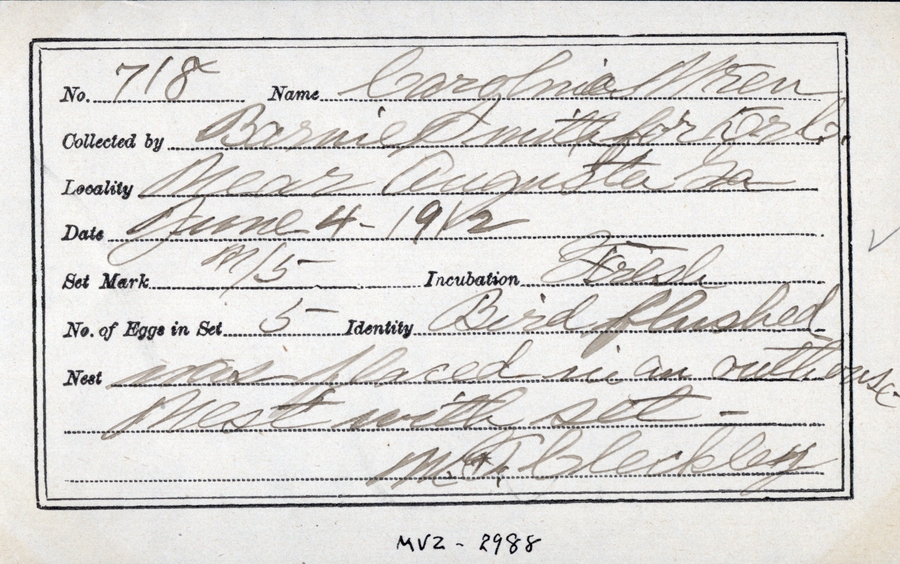 No. 718 Name Carolina Wren
Collected by Barnie Smith for
Locality Near Augusta Ga
Date June 4 - 1912
Set Mark n/5 Incubation Fresh
No. of Eggs in Set 5 Identity Bird flushed
Nest was placed in an outhouse
Nest with set -
M.T. Cleckley
MVZ - 2988